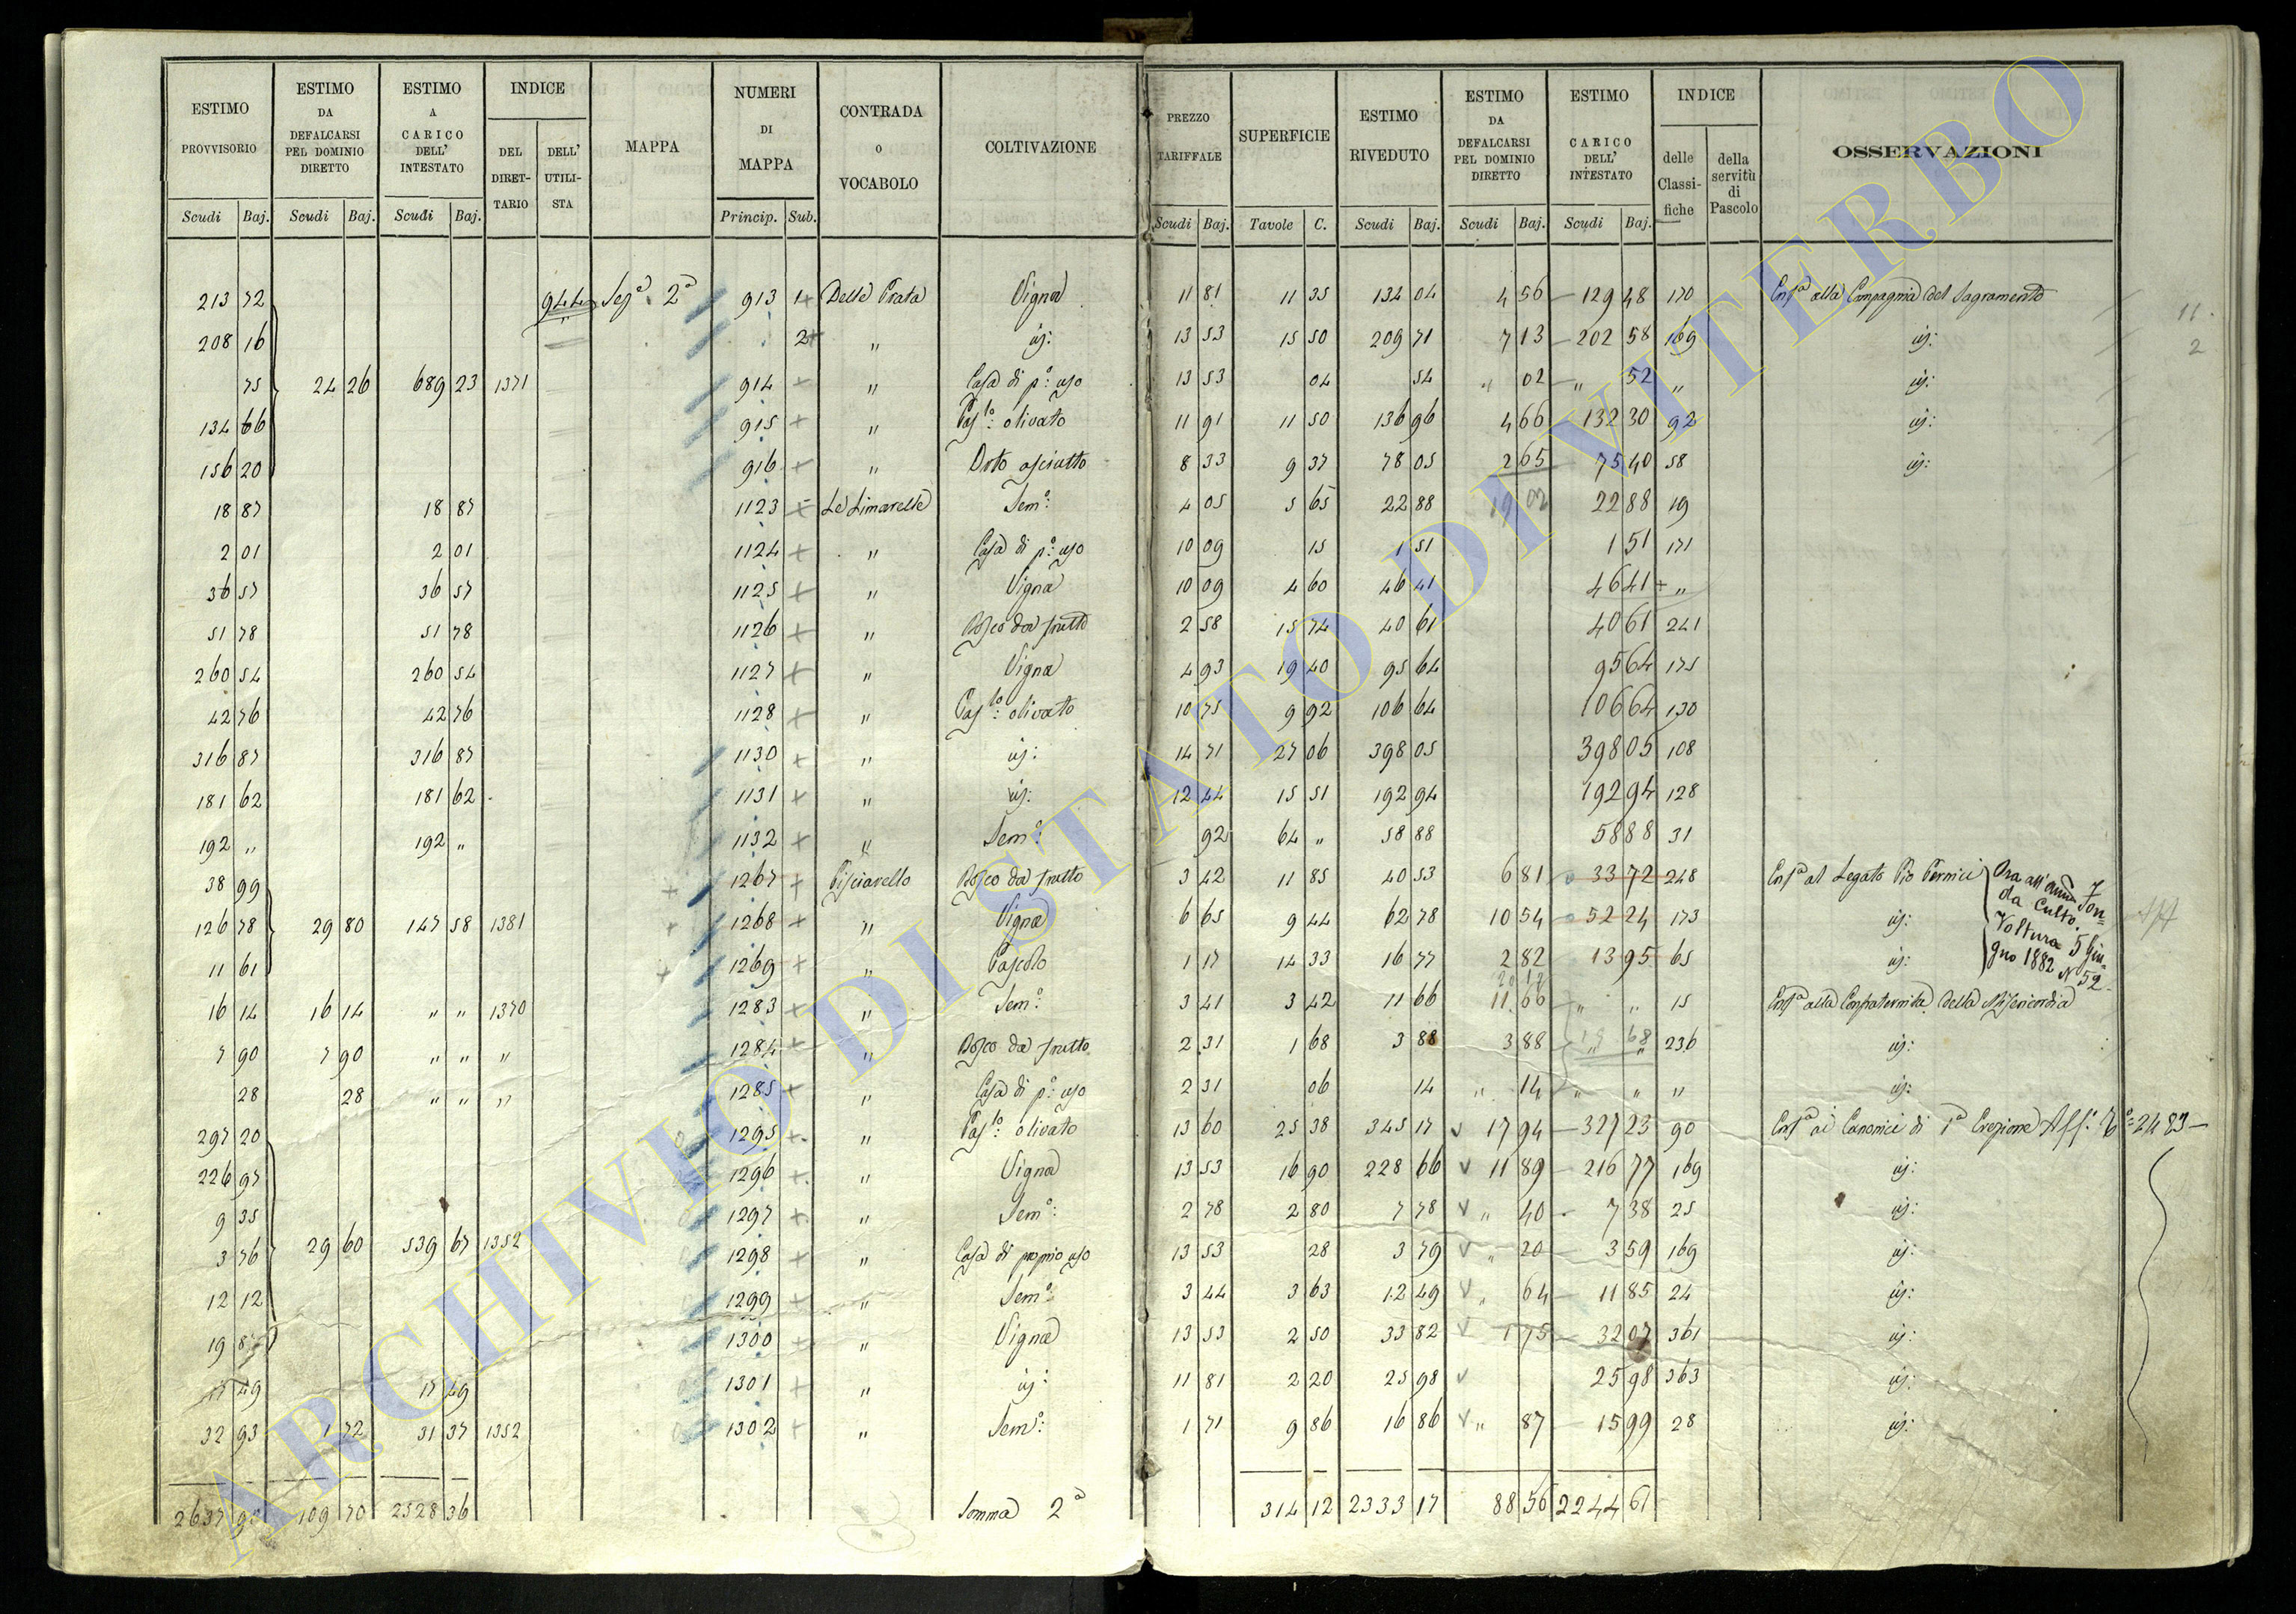 ESTIMO PROVVISORIO | ESTIMO DA DEFALCARSI PEL DOMINIO DIRETTO | ESTIMO A CARICO DELL' INTESTATO | INDICE DEL DIRETTARIO | DELL' UTILISTA | MAPPA | NUMERI DI MAPPA | CONTRADA O VOCABOLO | COLTIVAZIONE | PREZZO TARIFFALE | SUPERFICIE | ESTIMO RIVEDUTO | ESTIMO DA DEFALCARSI PEL DOMINIO DIRETTO | ESTIMO CARICO DELL' INTESTATO | INDICE delle Classifiche | della servitù di Pascolo | OSSERVAZIONI
Scudi Baj. | Scudi Baj. | Scudi Baj. | Princip. Sub. | Scudi Baj. | Tavole C. | Scudi Baj. | Scudi Baj. | Scudi Baj.
213 72 | 944 | Sez.a 2a | 913 1 | Delle Prata | Vigna | 11 81 | 11 35 | 134 04 | 4 56 | 129 48 | 170 | Enf.a alla Compagnia del Sagramento
208 16 | 2 | " | id: | 13 53 | 15 50 | 209 71 | 7 13 | 202 58 | 169 | id:
75 | 24 26 | 689 23 | 1371 | 914 | " | Casa di p.o uso | 13 53 | 04 | 54 | " 02 | " 52 | " | id:
134 66 | 915 | " | Pas.lo: olivato | 11 91 | 11 50 | 136 96 | 4 66 | 132 30 | 92 | id:
156 20 | 916 | " | Orto asciutto | 8 33 | 9 37 | 78 05 | 2 65 | 75 40 | 58 | id:
18 87 | 18 87 | 1123 | Le Limarelle | Sem.o: | 4 05 | 5 65 | 22 88 | 19 02 | 22 88 | 19
2 01 | 2 01 | 1124 | " | Casa di p.o uso | 10 09 | 15 | 1 51 | 1 51 | 171
36 57 | 36 57 | 1125 | " | Vigna | 10 09 | 4 60 | 46 41 | 46 41 | "
51 78 | 51 78 | 1126 | " | Bosco da frutto | 2 58 | 15 74 | 40 61 | 40 61 | 241
260 54 | 260 54 | 1127 | " | Vigna | 4 93 | 19 40 | 95 64 | 95 64 | 175
42 76 | 42 76 | 1128 | " | Pas.lo: olivato | 10 75 | 9 92 | 106 64 | 106 64 | 130
316 87 | 316 87 | 1130 | " | id: | 14 71 | 27 06 | 398 05 | 398 05 | 108
181 62 | 181 62 | 1131 | " | id: | 12 44 | 15 51 | 192 94 | 192 94 | 128
192 " | 192 " | 1132 | " | Sem.o: | 92 | 64 " | 58 88 | 58 88 | 31
38 99 | 1267 | Pisciarello | Bosco da frutto | 3 42 | 11 85 | 40 53 | 6 81 | 33 72 | 248 | Enf.a al Legato Pio Pernici
126 78 | 29 80 | 147 58 | 1381 | 1268 | " | Vigna | 6 65 | 9 44 | 62 78 | 10 54 | 52 24 | 173 | id:
11 61 | 1269 | " | Pascolo | 1 17 | 14 33 | 16 77 | 2 82 | 13 95 | 65 | id:
Voltura 5 Giugno 1882 N 52
16 14 | 16 14 | " " | 1370 | 1283 | " | Sem.o: | 3 41 | 3 42 | 11 66 | 11 66 | " " | 15 | Enf.a alla Confraternita della Misericordia
7 90 | 7 90 | " " | " | 1284 | " | Bosco da frutto | 2 31 | 1 68 | 3 88 | 3 88 | " " | 236 | id:
28 | 28 | " " | " | 1285 | " | Casa di p.o uso | 2 31 | 06 | 14 | " 14 | " " | " | id:
297 20 | 1295 | " | Pas.lo: olivato | 13 60 | 25 38 | 345 17 | 17 94 | 327 23 | 90 | Enf.a ai Canonici di 1.a Erezione Aff. 2483
226 97 | 1296 | " | Vigna | 13 53 | 16 90 | 228 66 | 11 89 | 216 77 | 169 | id:
9 35 | 1297 | " | Sem.o: | 2 78 | 2 80 | 7 78 | " 40 | 7 38 | 25 | id:
3 76 | 29 60 | 539 67 | 1352 | 1298 | " | Casa di proprio uso | 13 53 | 28 | 3 79 | " 20 | 3 59 | 169 | id:
12 12 | 1299 | " | Sem.o: | 3 44 | 3 63 | 12 49 | " 64 | 11 85 | 24 | id:
19 87 | 1300 | " | Vigna | 13 53 | 2 50 | 33 82 | 1 75 | 32 07 | 361 | id:
17 49 | 17 49 | 1301 | " | id: | 11 81 | 2 20 | 25 98 | 25 98 | 363 | id:
32 93 | 1 72 | 31 37 | 1352 | 1302 | " | Sem.o: | 1 71 | 9 86 | 16 86 | " 87 | 15 99 | 28 | id:
2637 90 | 109 70 | 2528 36 | Somma 2a | 314 12 | 2333 17 | 88 56 | 2244 61
ARCHIVIO DI STATO DI VITERBO